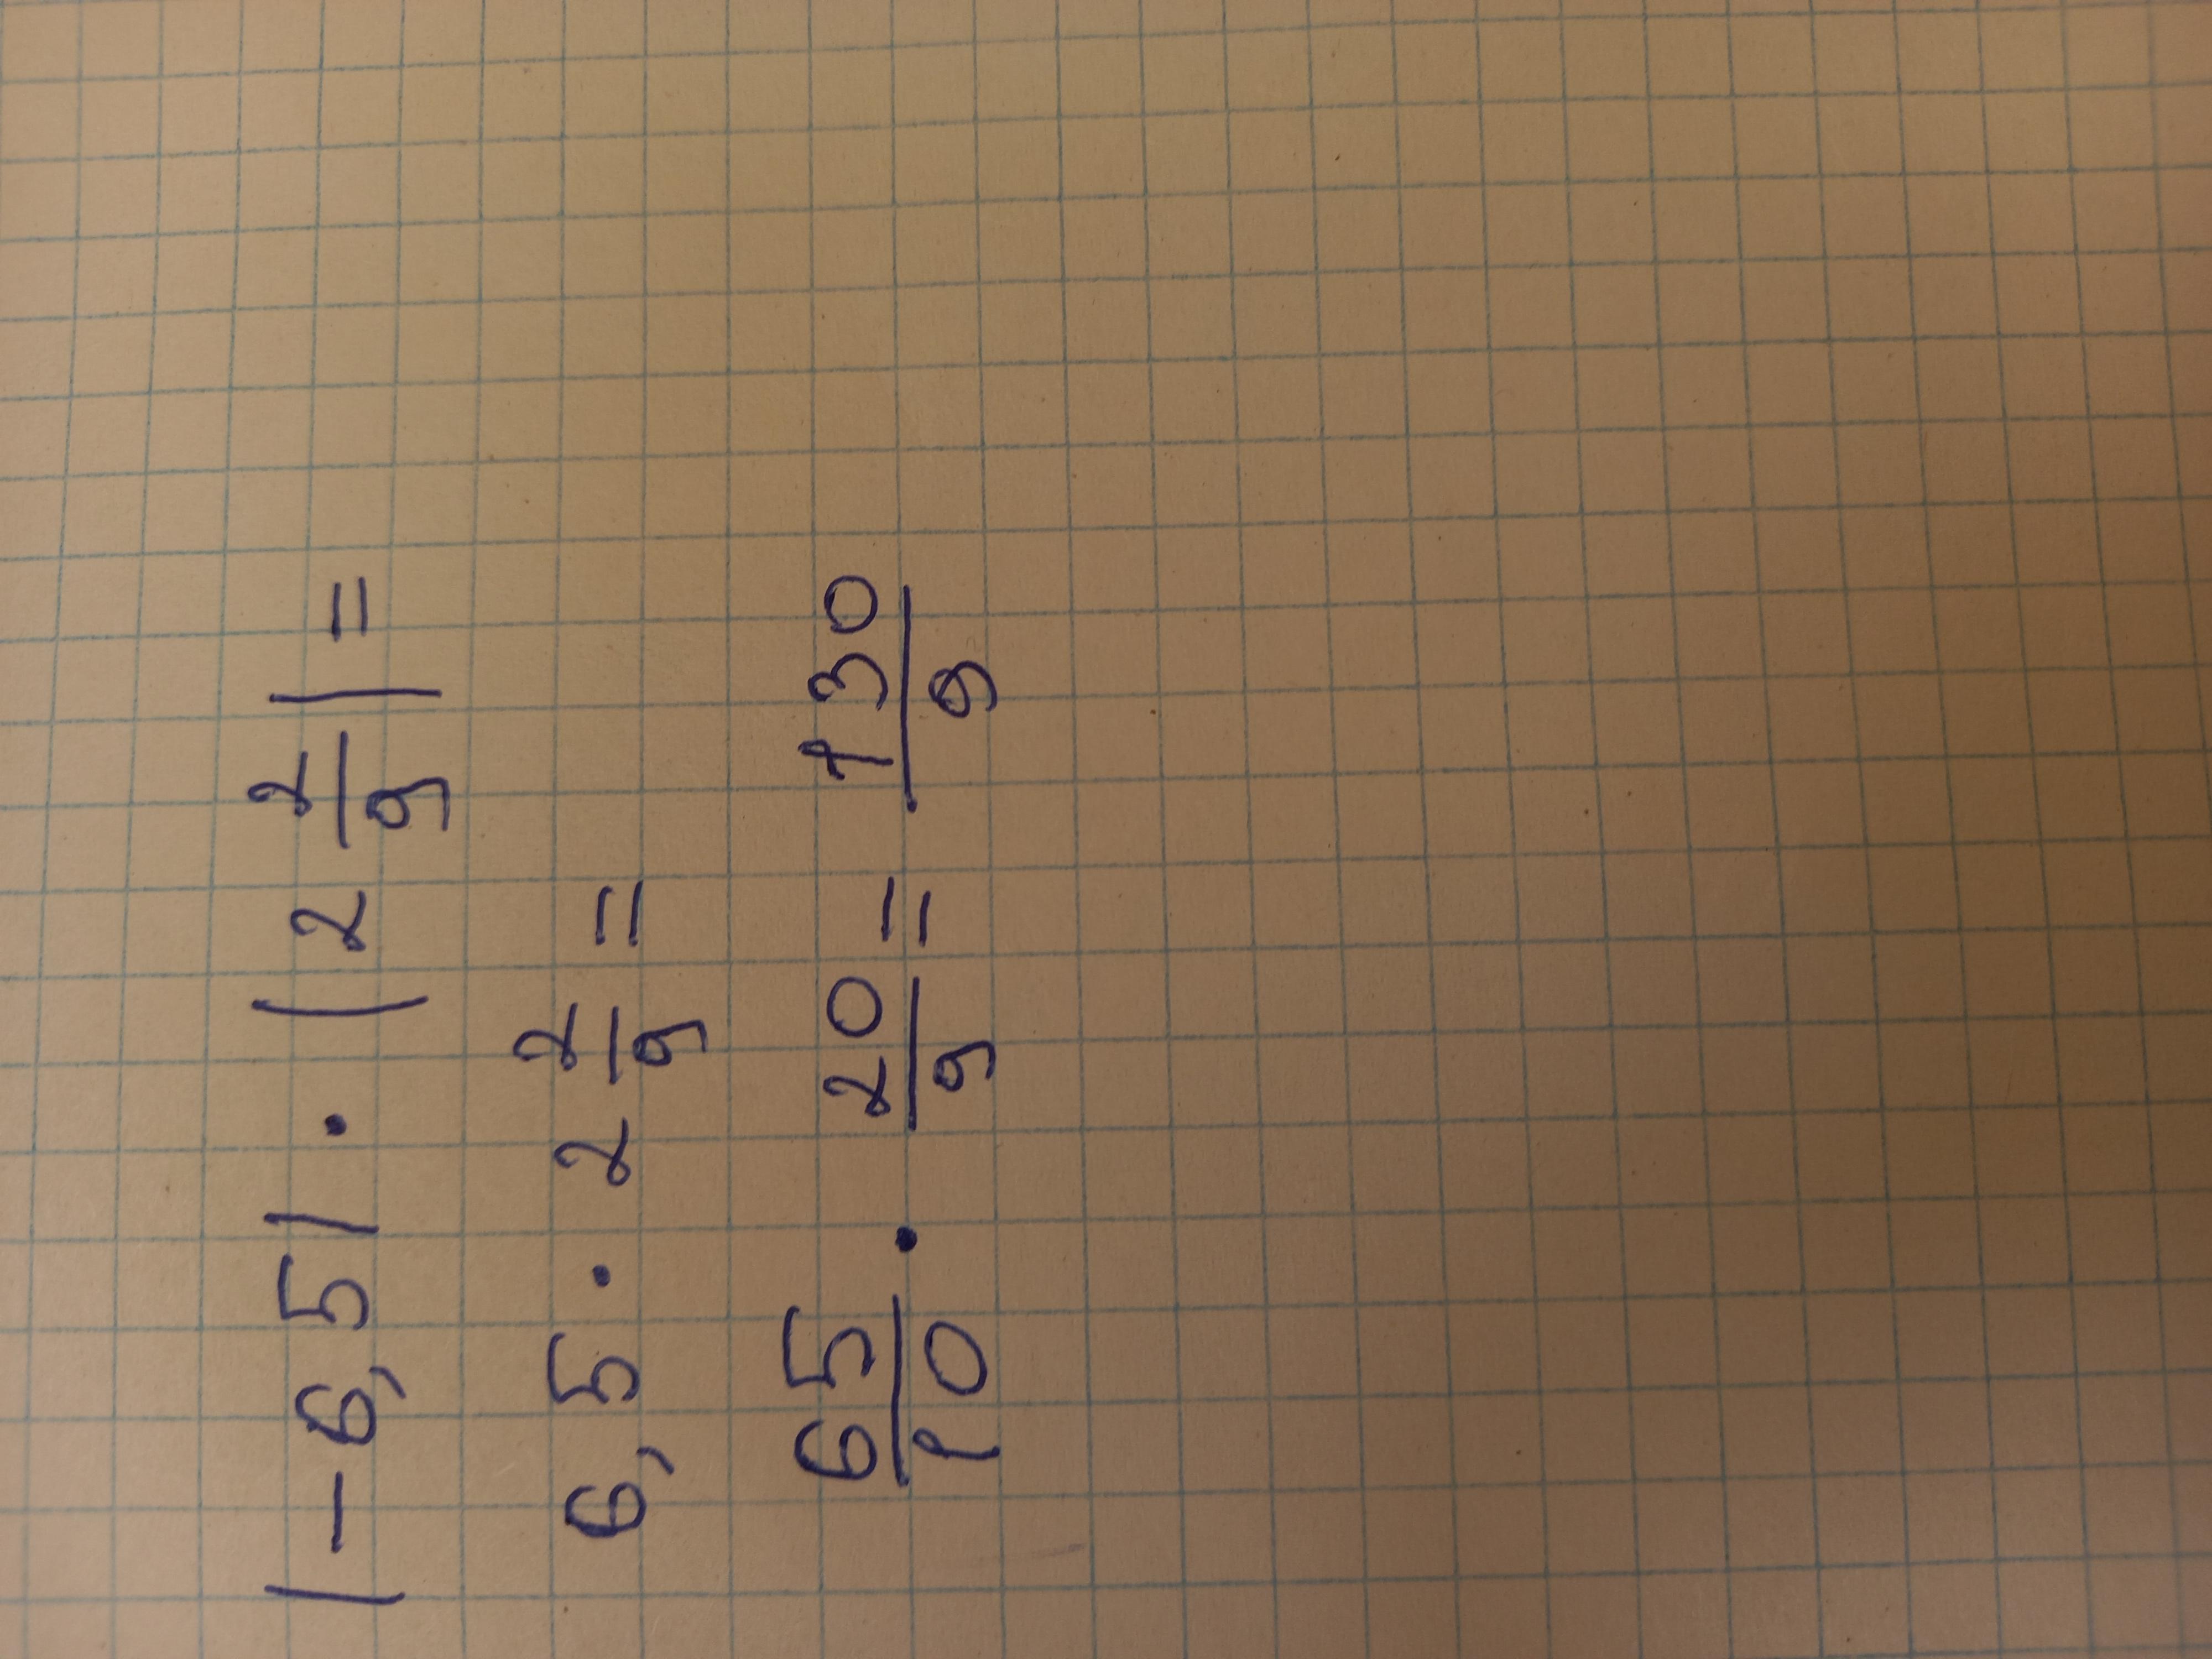 |-6,5| · |2 2/9| =
6,5 · 2 2/9 =
65/10 · 20/9 = 130/9